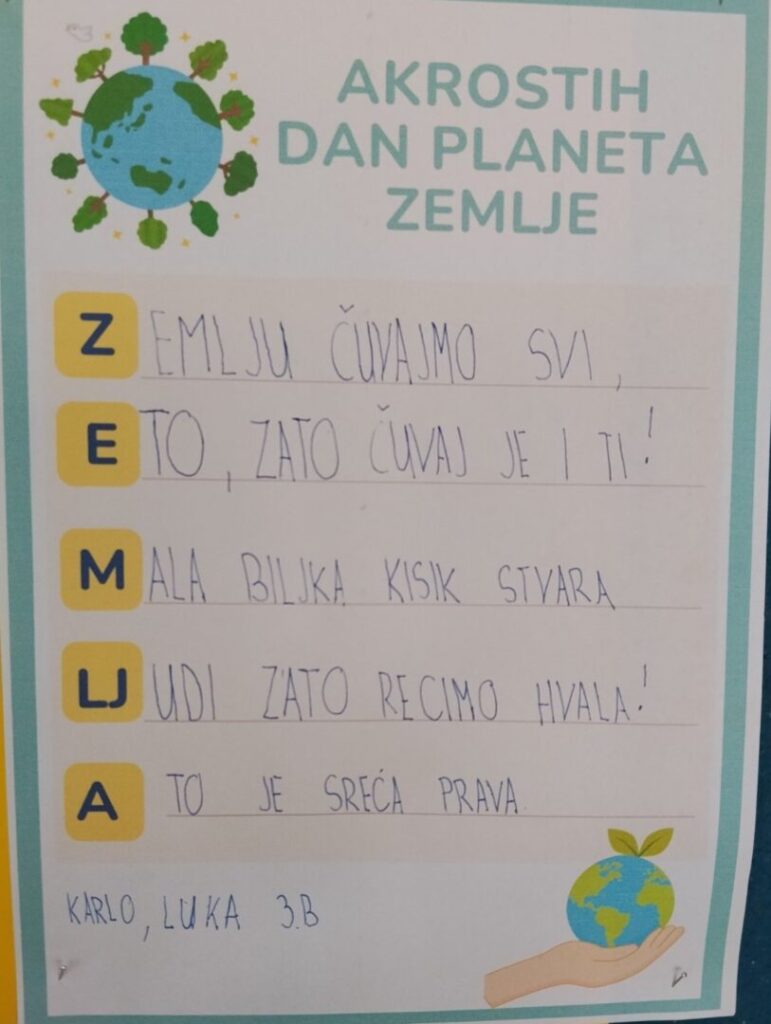 AKROSTIH
DAN PLANETA
ZEMLJE
ZEMLJU ČUVAJMO SVI,
ETO, ZATO ČUVAJ JE I TI!
MALA BILJKA KISIK STVARA
LJUDI ZATO RECIMO HVALA!
A TO JE SREĆA PRAVA
KARLO, LUKA 3.B